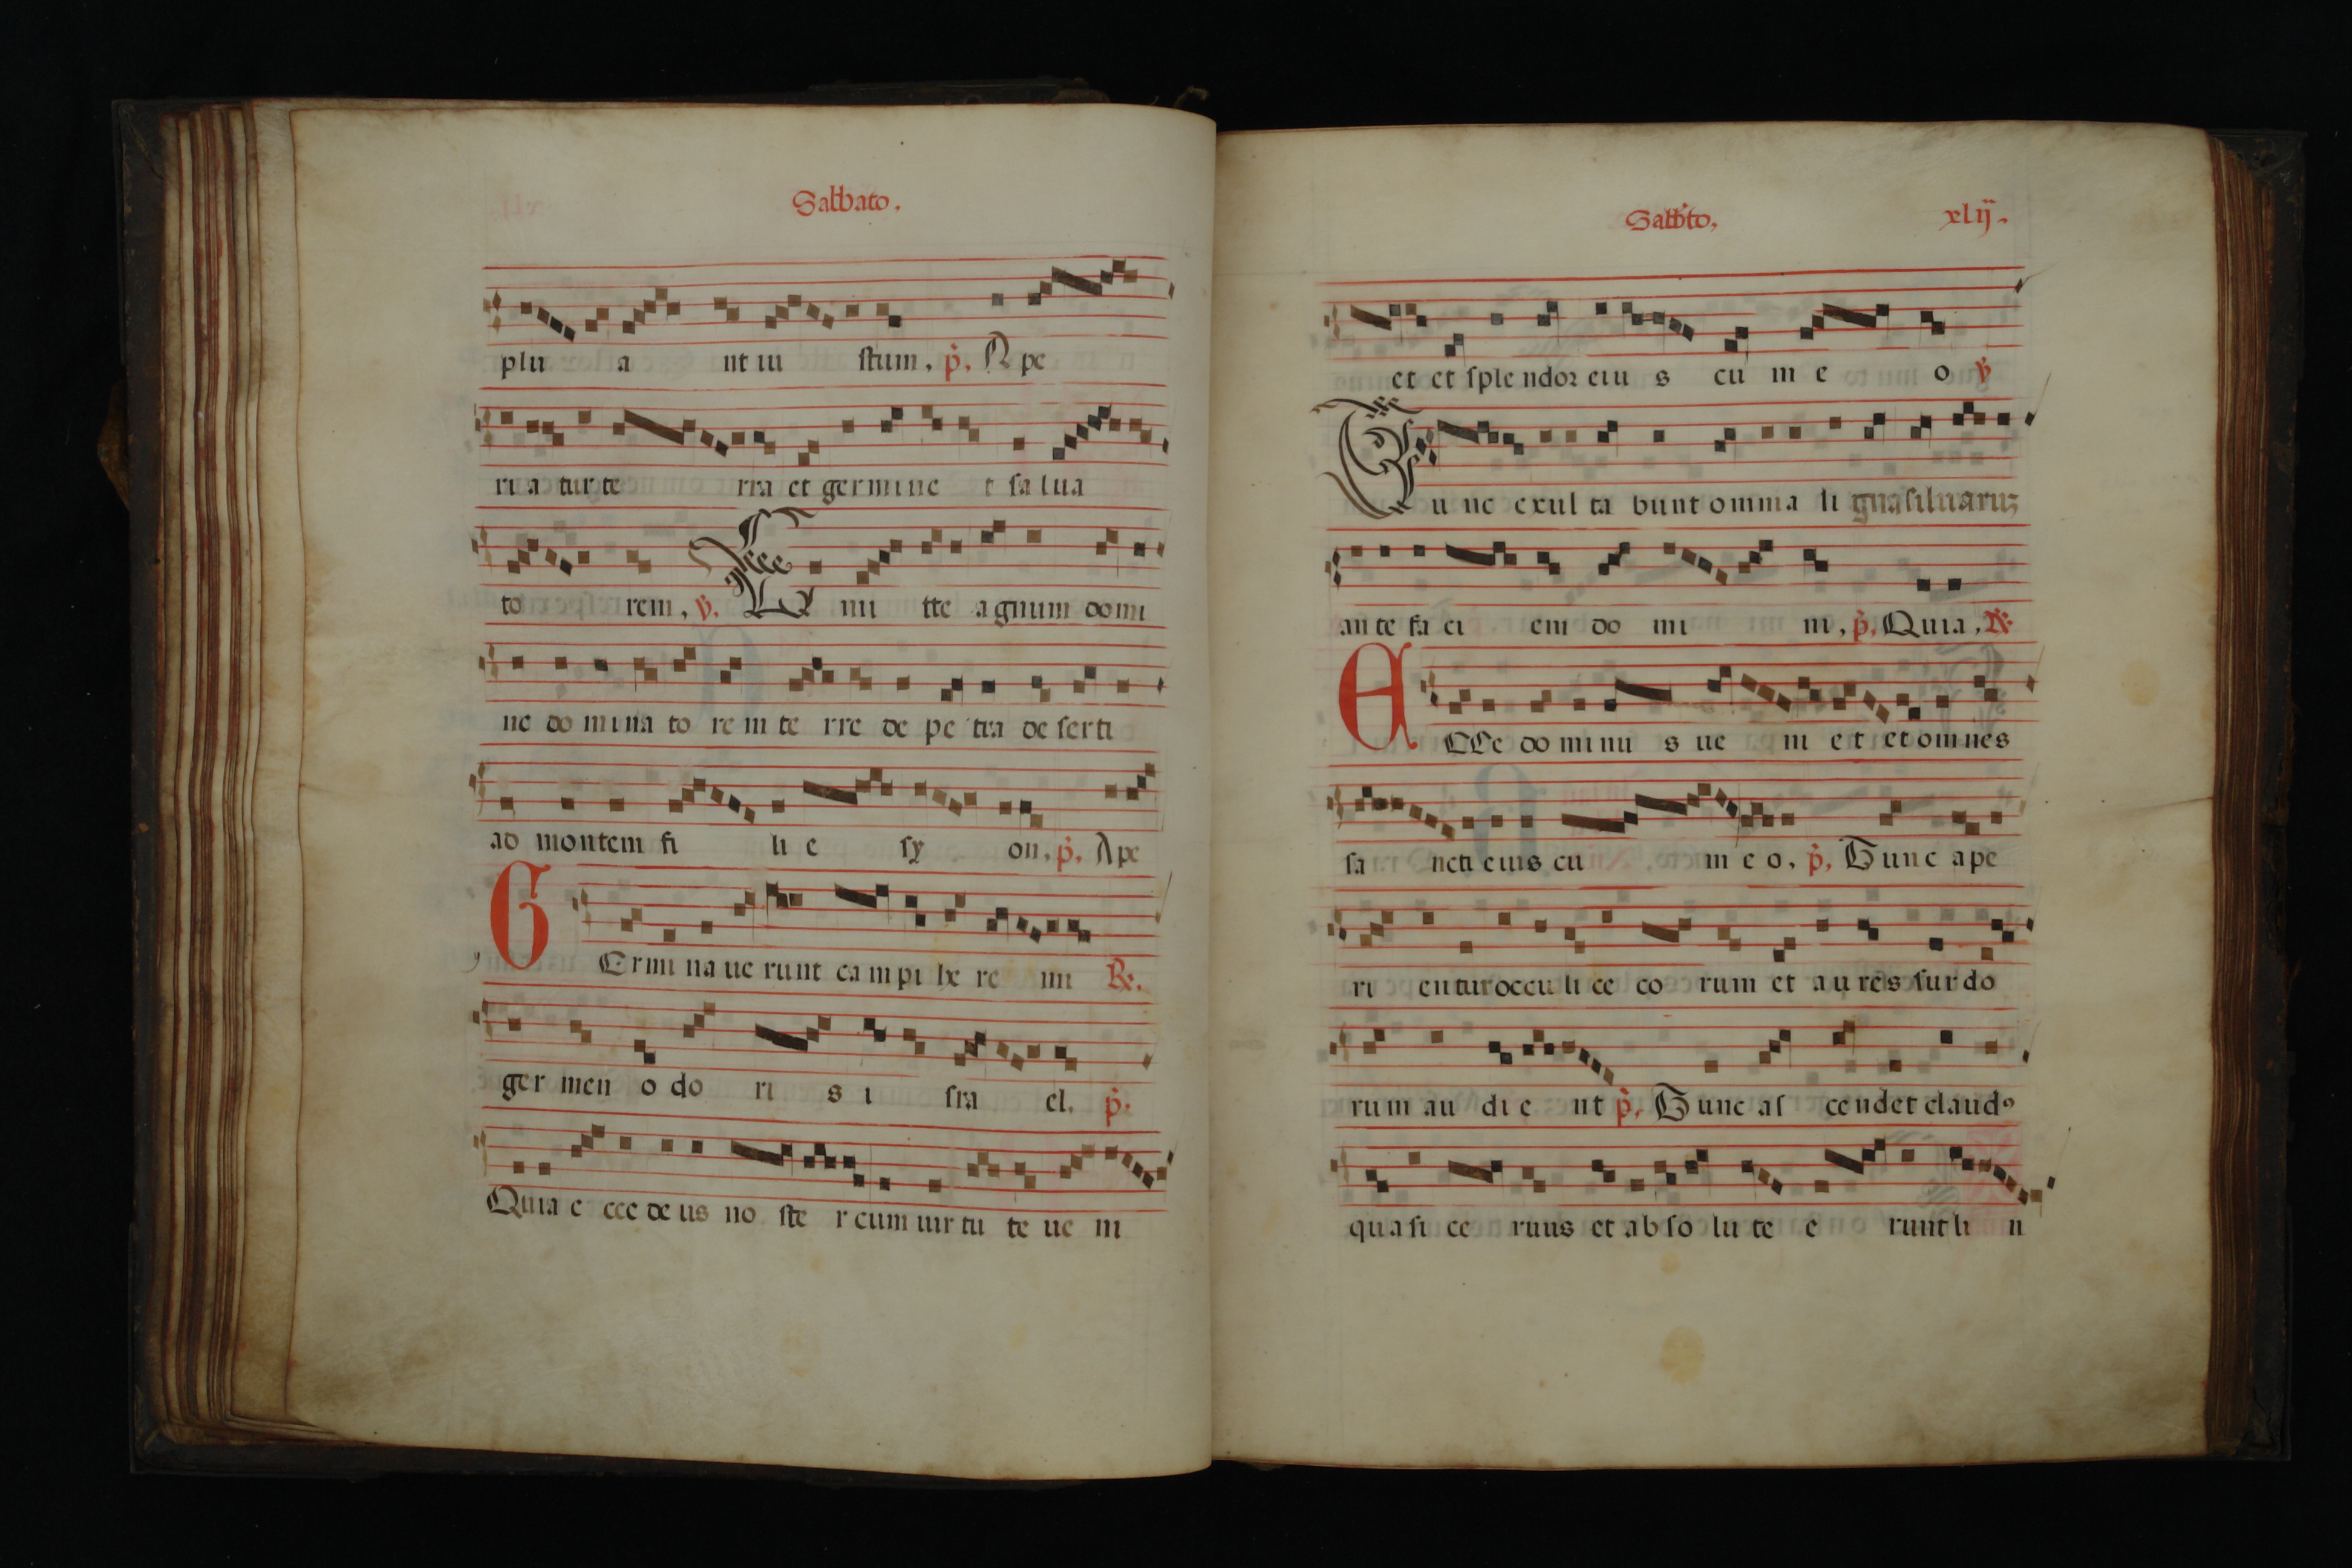 Sabbato.
plu a nt iu stum, p. Ape
ri a tur te rra et germine t salua
to rem, v. Emi tte agnum domi
ne domina to rem te rre de pe tra deserti
ad montem fi li e sy on, p. Ape
GErmi naue runt campi he re mi R.
ger men o do ri s i sra el. p.
Quia e cce deus no ste r cum uir tu te ue ni
Sabb'to, xlij.
et et sple ndor eiu s cu m e o v
Tunc exul ta bunt omnia li gna siluaruz
ante fa ci em do mi ni, p. Quia, R.
ECCe do minu s ue ni et et omnes
sa ncti eius cu m e o, p. Tunc ape
ri entur occu li ce co rum et aures surdo
rum au di e nt p. Tunc as cendet claud9
quasi ce ruus et abso lu te e runt li n